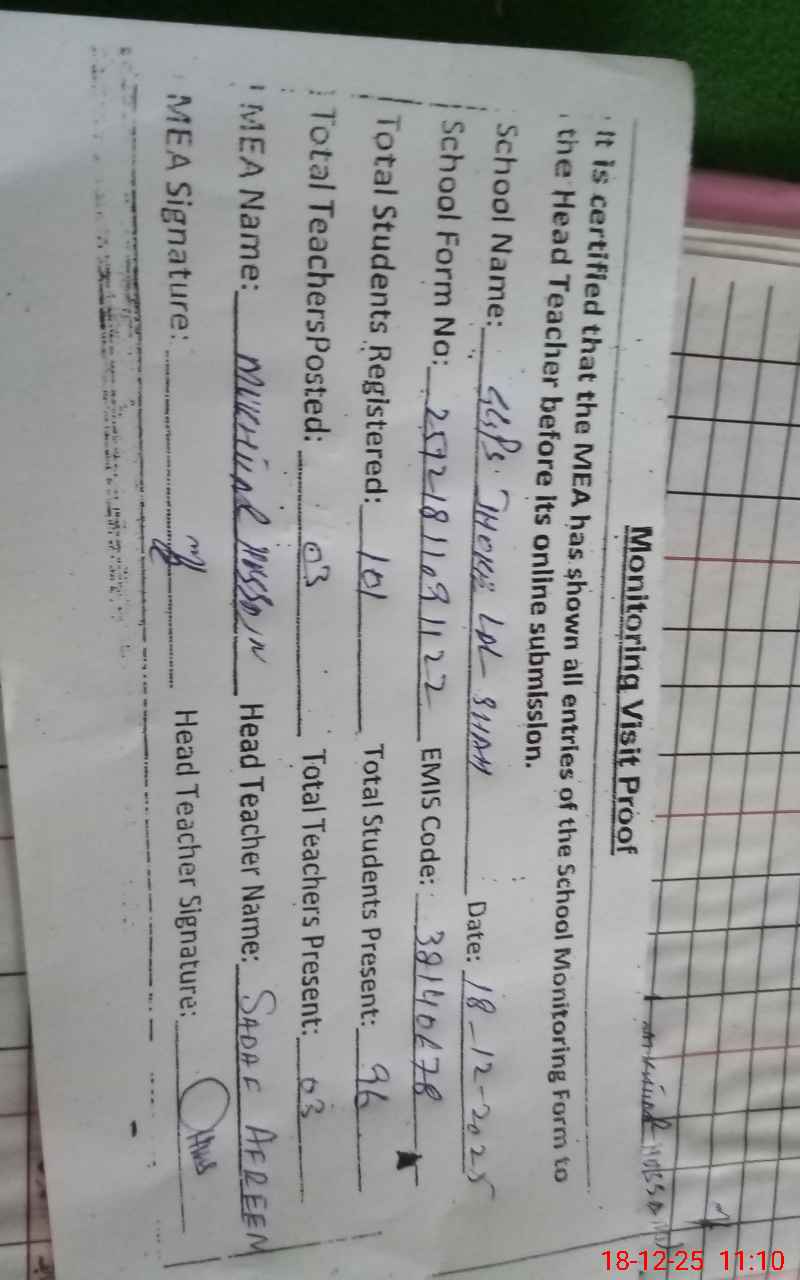 Monitoring Visit Proof
It is certified that the MEA has shown all entries of the School Monitoring Form to
the Head Teacher before its online submission.
School Name: GGPS THOKE LAL SHAH Date: 18-12-2025
School Form No: 25921811091122 EMIS Code: 38140678
Total Students Registered: 101 Total Students Present: 96
Total TeachersPosted: 03 Total Teachers Present: 03
MEA Name: MUKHTIAR HUSSAIN Head Teacher Name: SADAF AFREEN
MEA Signature: Head Teacher Signature:
18-12-25 11:10